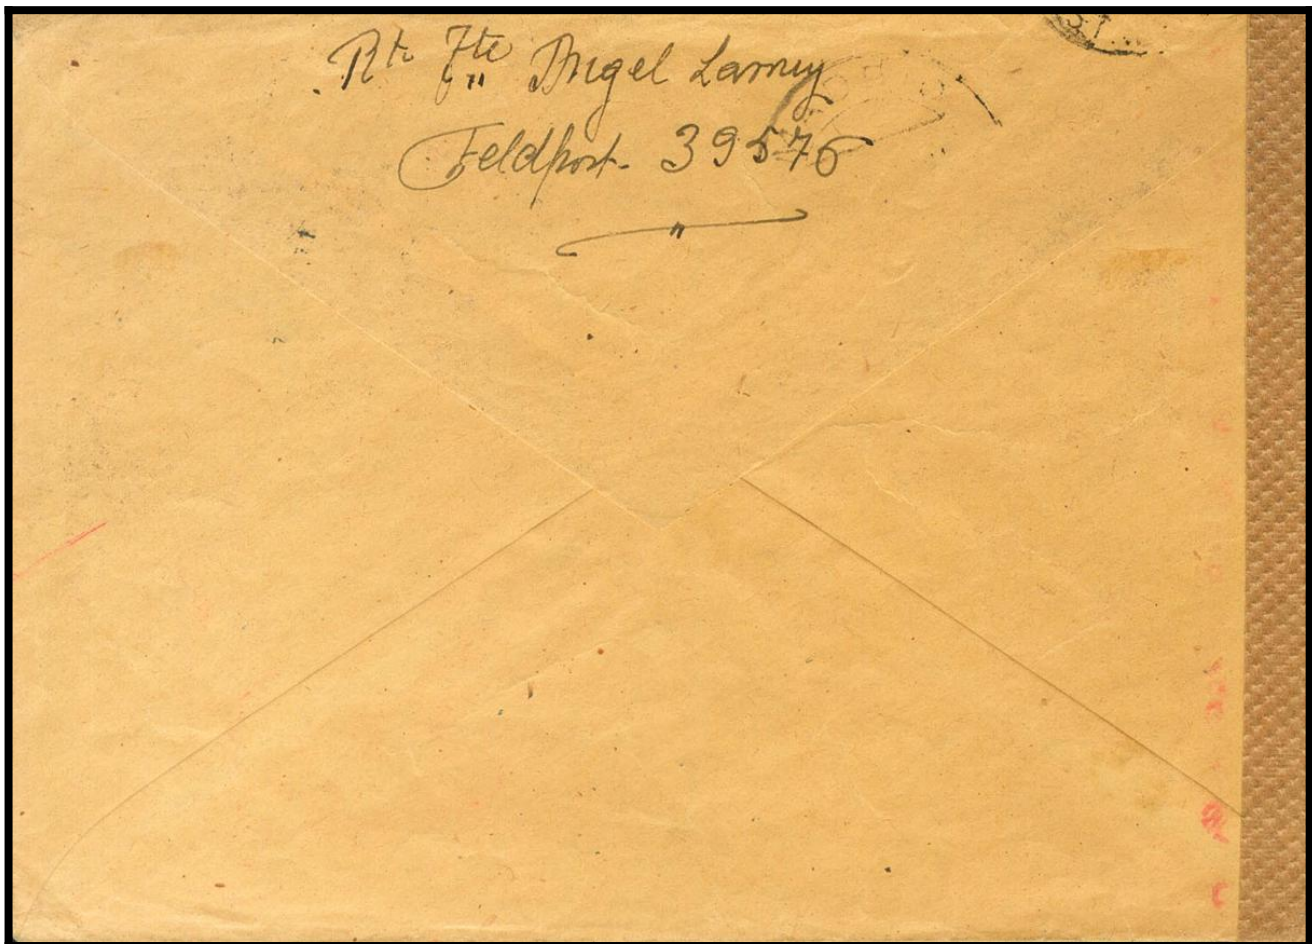 Rte Fte Angel Larruy
Feldpost- 39576